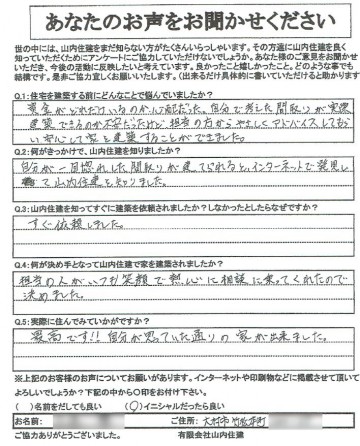 あなたのお声をお聞かせください
世の中には、山内住建をまだ知らない方がたくさんいらっしゃいます。その方達に山内住建を良く
知っていただくためにアンケートにご協力していただけないでしょうか。あなた様のご意見をお聞かせ
いただき、今後の活動に反映したいと考えています。良かったこと嬉しかったこと。どのような事でも
結構です。是非ご協力宜しくお願いいたします。（出来るだけ具体的に書いていただけると助かります
Q.1:住宅を建築する前にどんなことで悩んでいましたか？
資金がどれだけいるのか心配だった。自分で考えた間取りが実際
建築できるのか不安だったけど、担当の方からやさしくアドバイスしてもら
い 安心して家を建築することができました。
Q.2:何がきっかけで、山内住建を知りましたか？
自分が一目惚れした間取りが建てられると、インターネットで発見し
て山内住建を知りました。
Q.3:山内住建を知ってすぐに建築を依頼されましたか？しなかったとしたらなぜですか？
すぐ依頼しました。
Q.4:何が決め手となって山内住建で家を建築されましたか？
担当の人がいつも笑顔で熱心に相談に乗ってくれたので
決めました。
Q.5:実際に住んでみていかがですか？
最高です!! 自分が思っていた通りの家が出来ました。
※上記のお客様のお声についてお願いがあります。インターネットや印刷物などに掲載させて頂いて
よろしいでしょうか？下記の中から〇印をお付け下さい。
（ ）名前をだしても良い （〇）イニシャルだったら良い
お名前： ご住所： 大村市
ご協力ありがとうございました。 有限会社山内住建